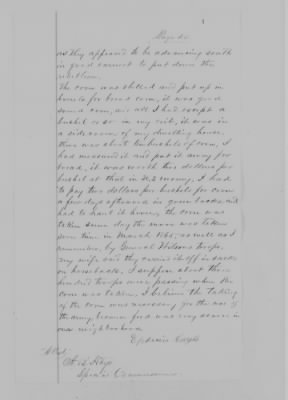 as they appeared to be advancing south
in good earnest to put down the
rebellion.
The corn was shelled and put up in
barrels for bread corn, it was good
sound corn, was all I had except a
bushel or so in my crib, it was in
a side room of my dwelling house,
there was about ten bushels of corn, I
had measured it and put it away for
bread, it was worth two dollars per
bushel at that in U.S. money, I had
to pay two dollars per bushels for corn
a few days afterward in green backs and
had to haul it home, the corn was
taken same day the mare was taken
some time in March 1865, as well as I
remember, by General Wilsons troops,
my wife said they carried it off in sacks
on horseback. I suppose about three
hundred troops were passing when the
corn was taken, I believe the taking
of the corn was necessary for the use of
the army, because feed was very scarce in
our neighborhood.
Attest
Special Commissioner